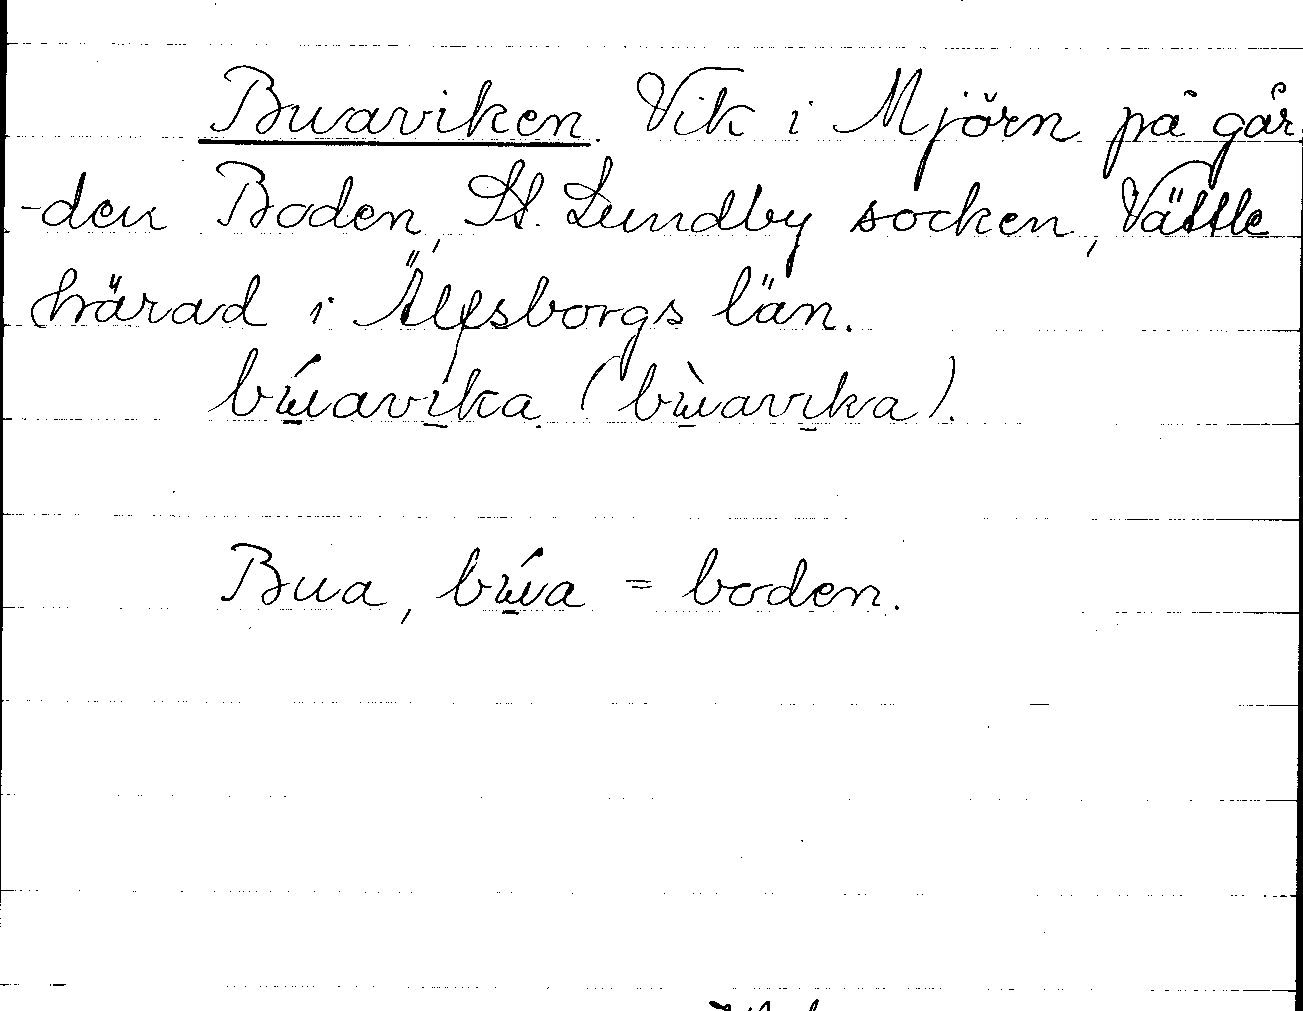 Buaviken. Vik i Mjörn på går
-den Boden, St. Lundby socken, Vättle
härad i Älfsborgs län.
bú̱avi̱ka (bù̱avi̱ka).
Bua, bú̱a = boden.